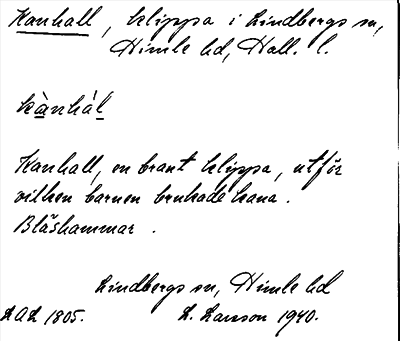 Kanhall, klippa i Lindbergs sn,
Himle hd, Hall. l.
kànhál
Kanhall, en brant klippa, utför
vilken barnen brukade kana.
Blåshammar.
Lindbergs sn, Himle hd
LAL 1805. L. Larsson 1940.